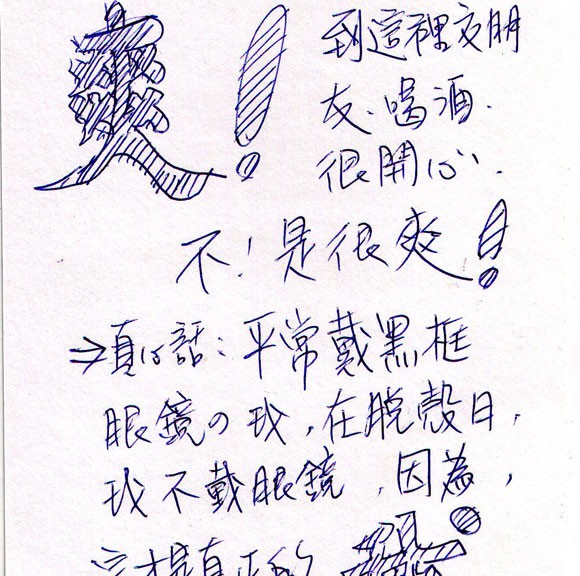 爽!
到這裡交朋
友、喝酒、
很開心、
不!是很爽!
⇒真心話:平常戴黑框
眼鏡の我,在脫殼日,
我不戴眼鏡,因為,
這才是真正的